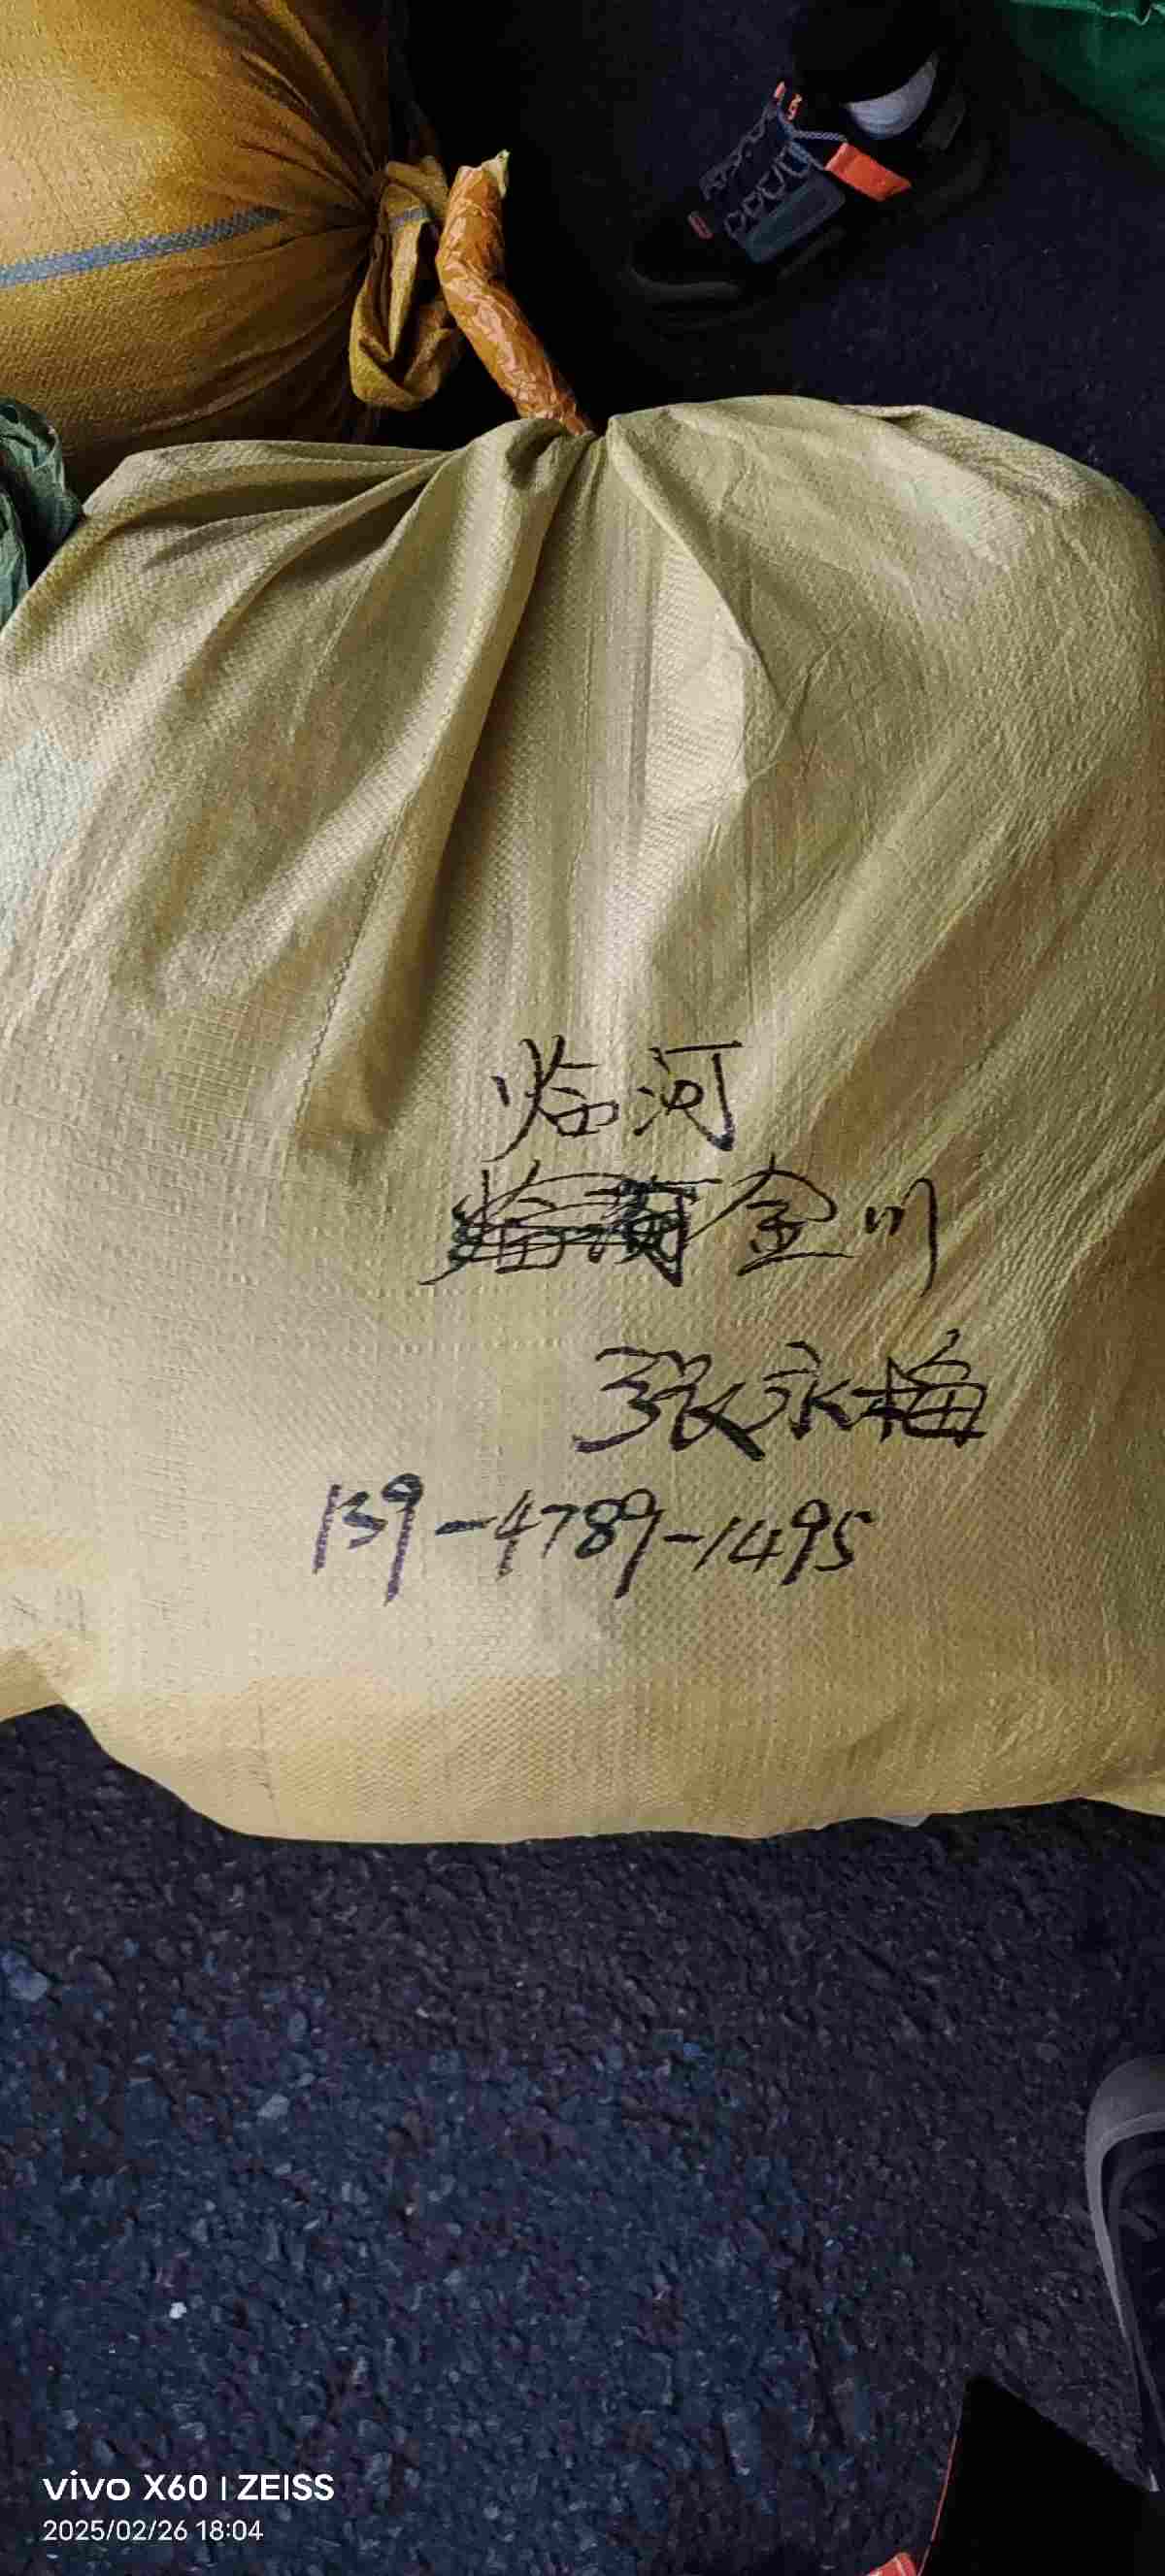 临河
金川
张永梅
139-4789-1495
vivo X60 | ZEISS
2025/02/26 18:04